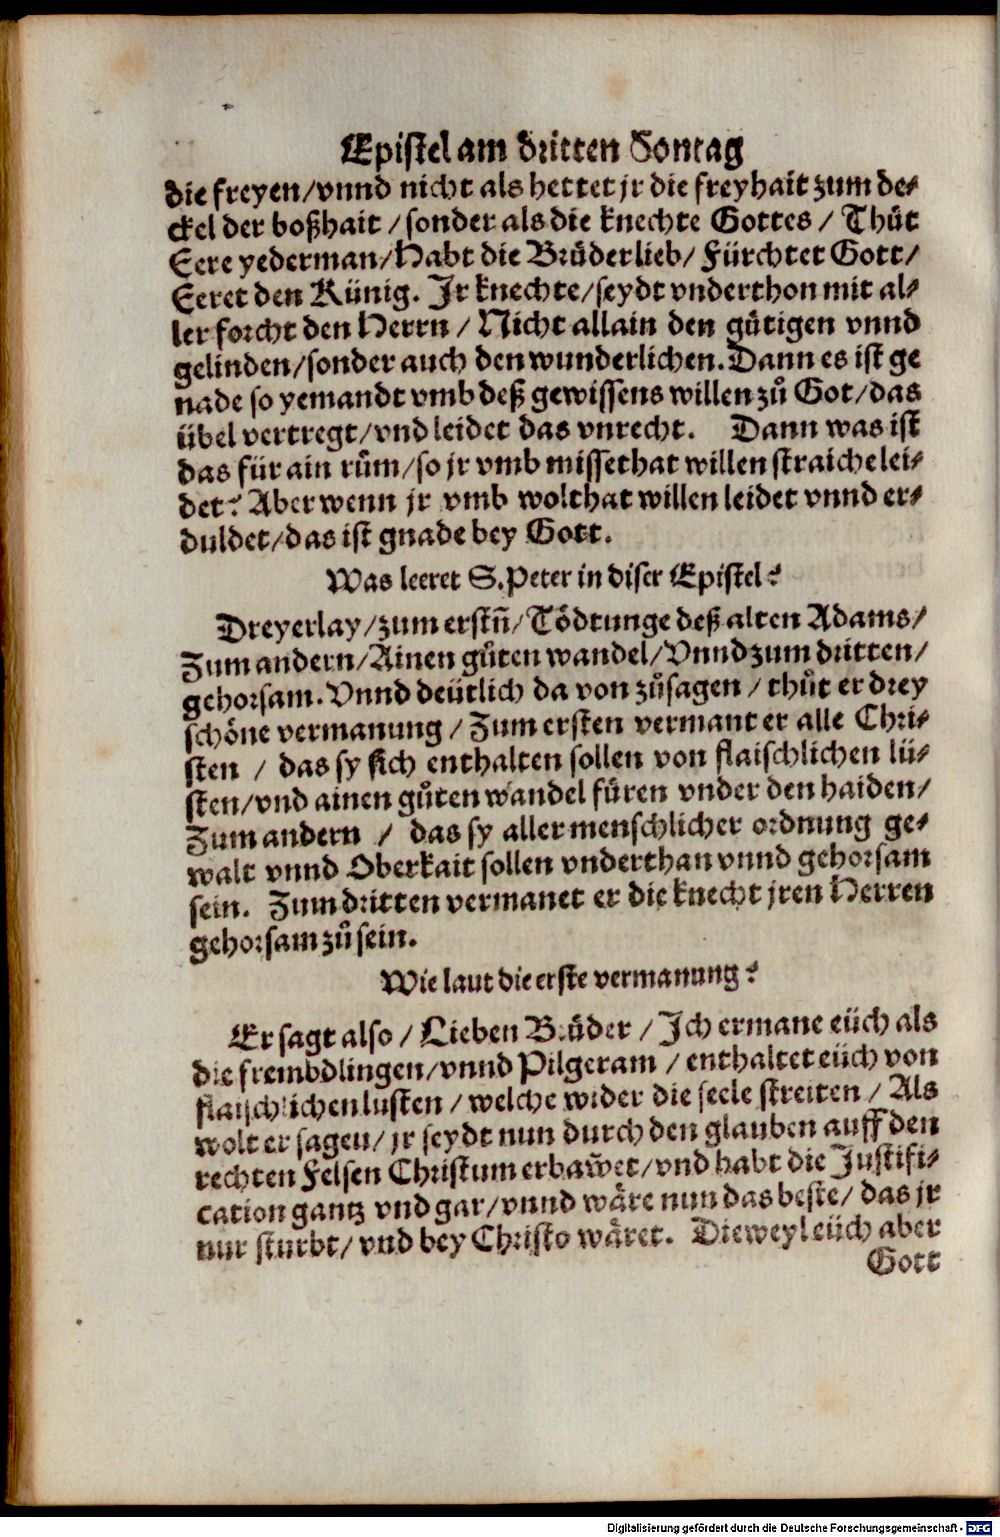 Epistel am dritten Sontag
die freyen/vnnd nicht als hettet jr die freyhait zum de-
ckel der boßhait/sonder als die knechte Gottes/Thůt
Eere yederman/Habt die Brůderlieb/Fürchtet Gott/
Eeret den Künig. Jr knechte/seydt vnderthon mit al-
ler forcht den Herrn/Nicht allain den gůtigen vnnd
gelinden/sonder auch den wunderlichen. Dann es ist ge
nade so yemandt vmb deß gewissens willen zů Got/das
übel vertregt/vnd leidet das vnrecht. Dann was ist
das für ain rům/so jr vmb missethat willen straiche lei-
det? Aber wenn jr vmb wolthat willen leidet vnnd er-
duldet/das ist gnade bey Gott.
Was leeret S. Peter in diser Epistel?
Dreyerlay/zum erstñ/Tödtunge deß alten Adams/
Zum andern/Ainen gůten wandel/Vnnd zum dritten/
gehorsam. Vnnd deütlich da von zůsagen/thůt er drey
schöne vermanung/Zum ersten vermant er alle Chri-
sten/das sy sich enthalten sollen von flaischlichen lü-
sten/vnd ainen gůten wandel fůren vnder den haiden/
Zum andern/das sy aller menschlicher ordnung ge-
walt vnnd Oberkait sollen vnderthan vnnd gehorsam
sein. Zum dritten vermanet er die knecht jren Herren
gehorsam zů sein.
Wie laut die erste vermanung?
Er sagt also/Lieben Brůder/Jch ermane eüch als
die frembdlingen/vnnd Pilgeram/enthaltet eüch von
flaischlichen lusten/welche wider die seele streiten/Als
wolt er sagen/jr seydt nun durch den glauben auff den
rechten Felsen Christum erbaw̃et/vnd habt die Justifi-
cation gantz vnd gar/vnnd wäre nun das beste/das jr
nur sturbt/vnd bey Christo wäret. Dieweyl eüch aber
Gott
Digitalisierung gefördert durch die Deutsche Forschungsgemeinschaft - DFG